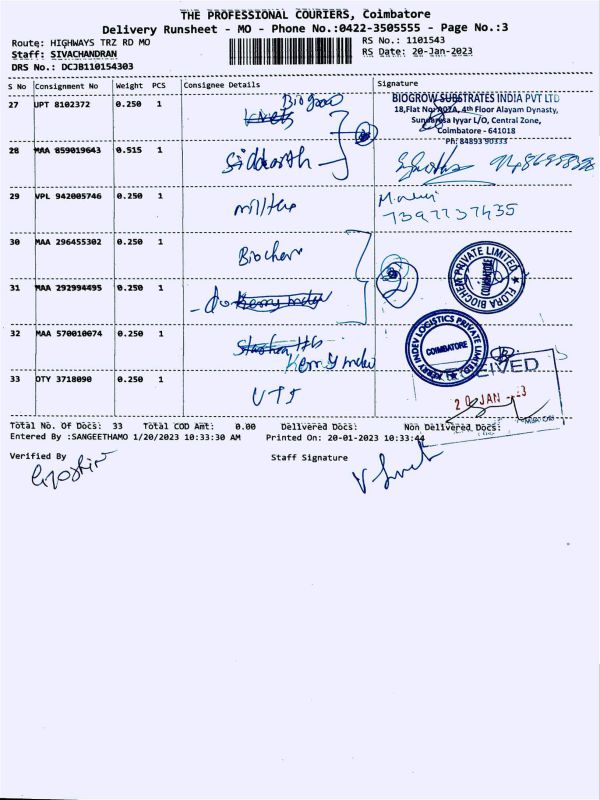 THE PROFESSIONAL COURIERS, Coimbatore
Delivery Runsheet - MO - Phone No.:0422-3505555 - Page No.:3
Route: HIGHWAYS TRZ RD MO
RS No.: 1101543
Staff: SIVACHANDRAN
RS Date: 20-Jan-2023
DRS No.: DCJB110154303
S No Consignment No Weight PCS Consignee Details Signature
27 UPT 8102372 0.250 1 Biogrow
BIOGROW SUBSTRATES INDIA PVT LTD
18, Flat No. 401A, 4th Floor Alayam Dynasty,
Sundaresa Iyyar L/O, Central Zone,
Coimbatore - 641018
Ph: 84893 90333
28 MAA 859019643 0.515 1 Siddharth
29 VPL 942005746 0.250 1 miltex
30 MAA 296455302 0.250 1 Biochem
FLORA BIOCHEM PRIVATE LIMITED
COIMBATORE
31 MAA 292994495 0.250 1 - do
32 MAA 570010074 0.250 1 Kerry Indev
KERRY INDEV LOGISTICS PRIVATE LIMITED
COIMBATORE
33 DTY 3718090 0.250 1 UTS
RECEIVED
20 JAN 23
Total No. Of Docs: 33 Total COD Amt: 0.00 Delivered Docs: Non Delivered Docs:
Entered By :SANGEETHAMO 1/20/2023 10:33:30 AM Printed On: 20-01-2023 10:33:44
Verified By Staff Signature